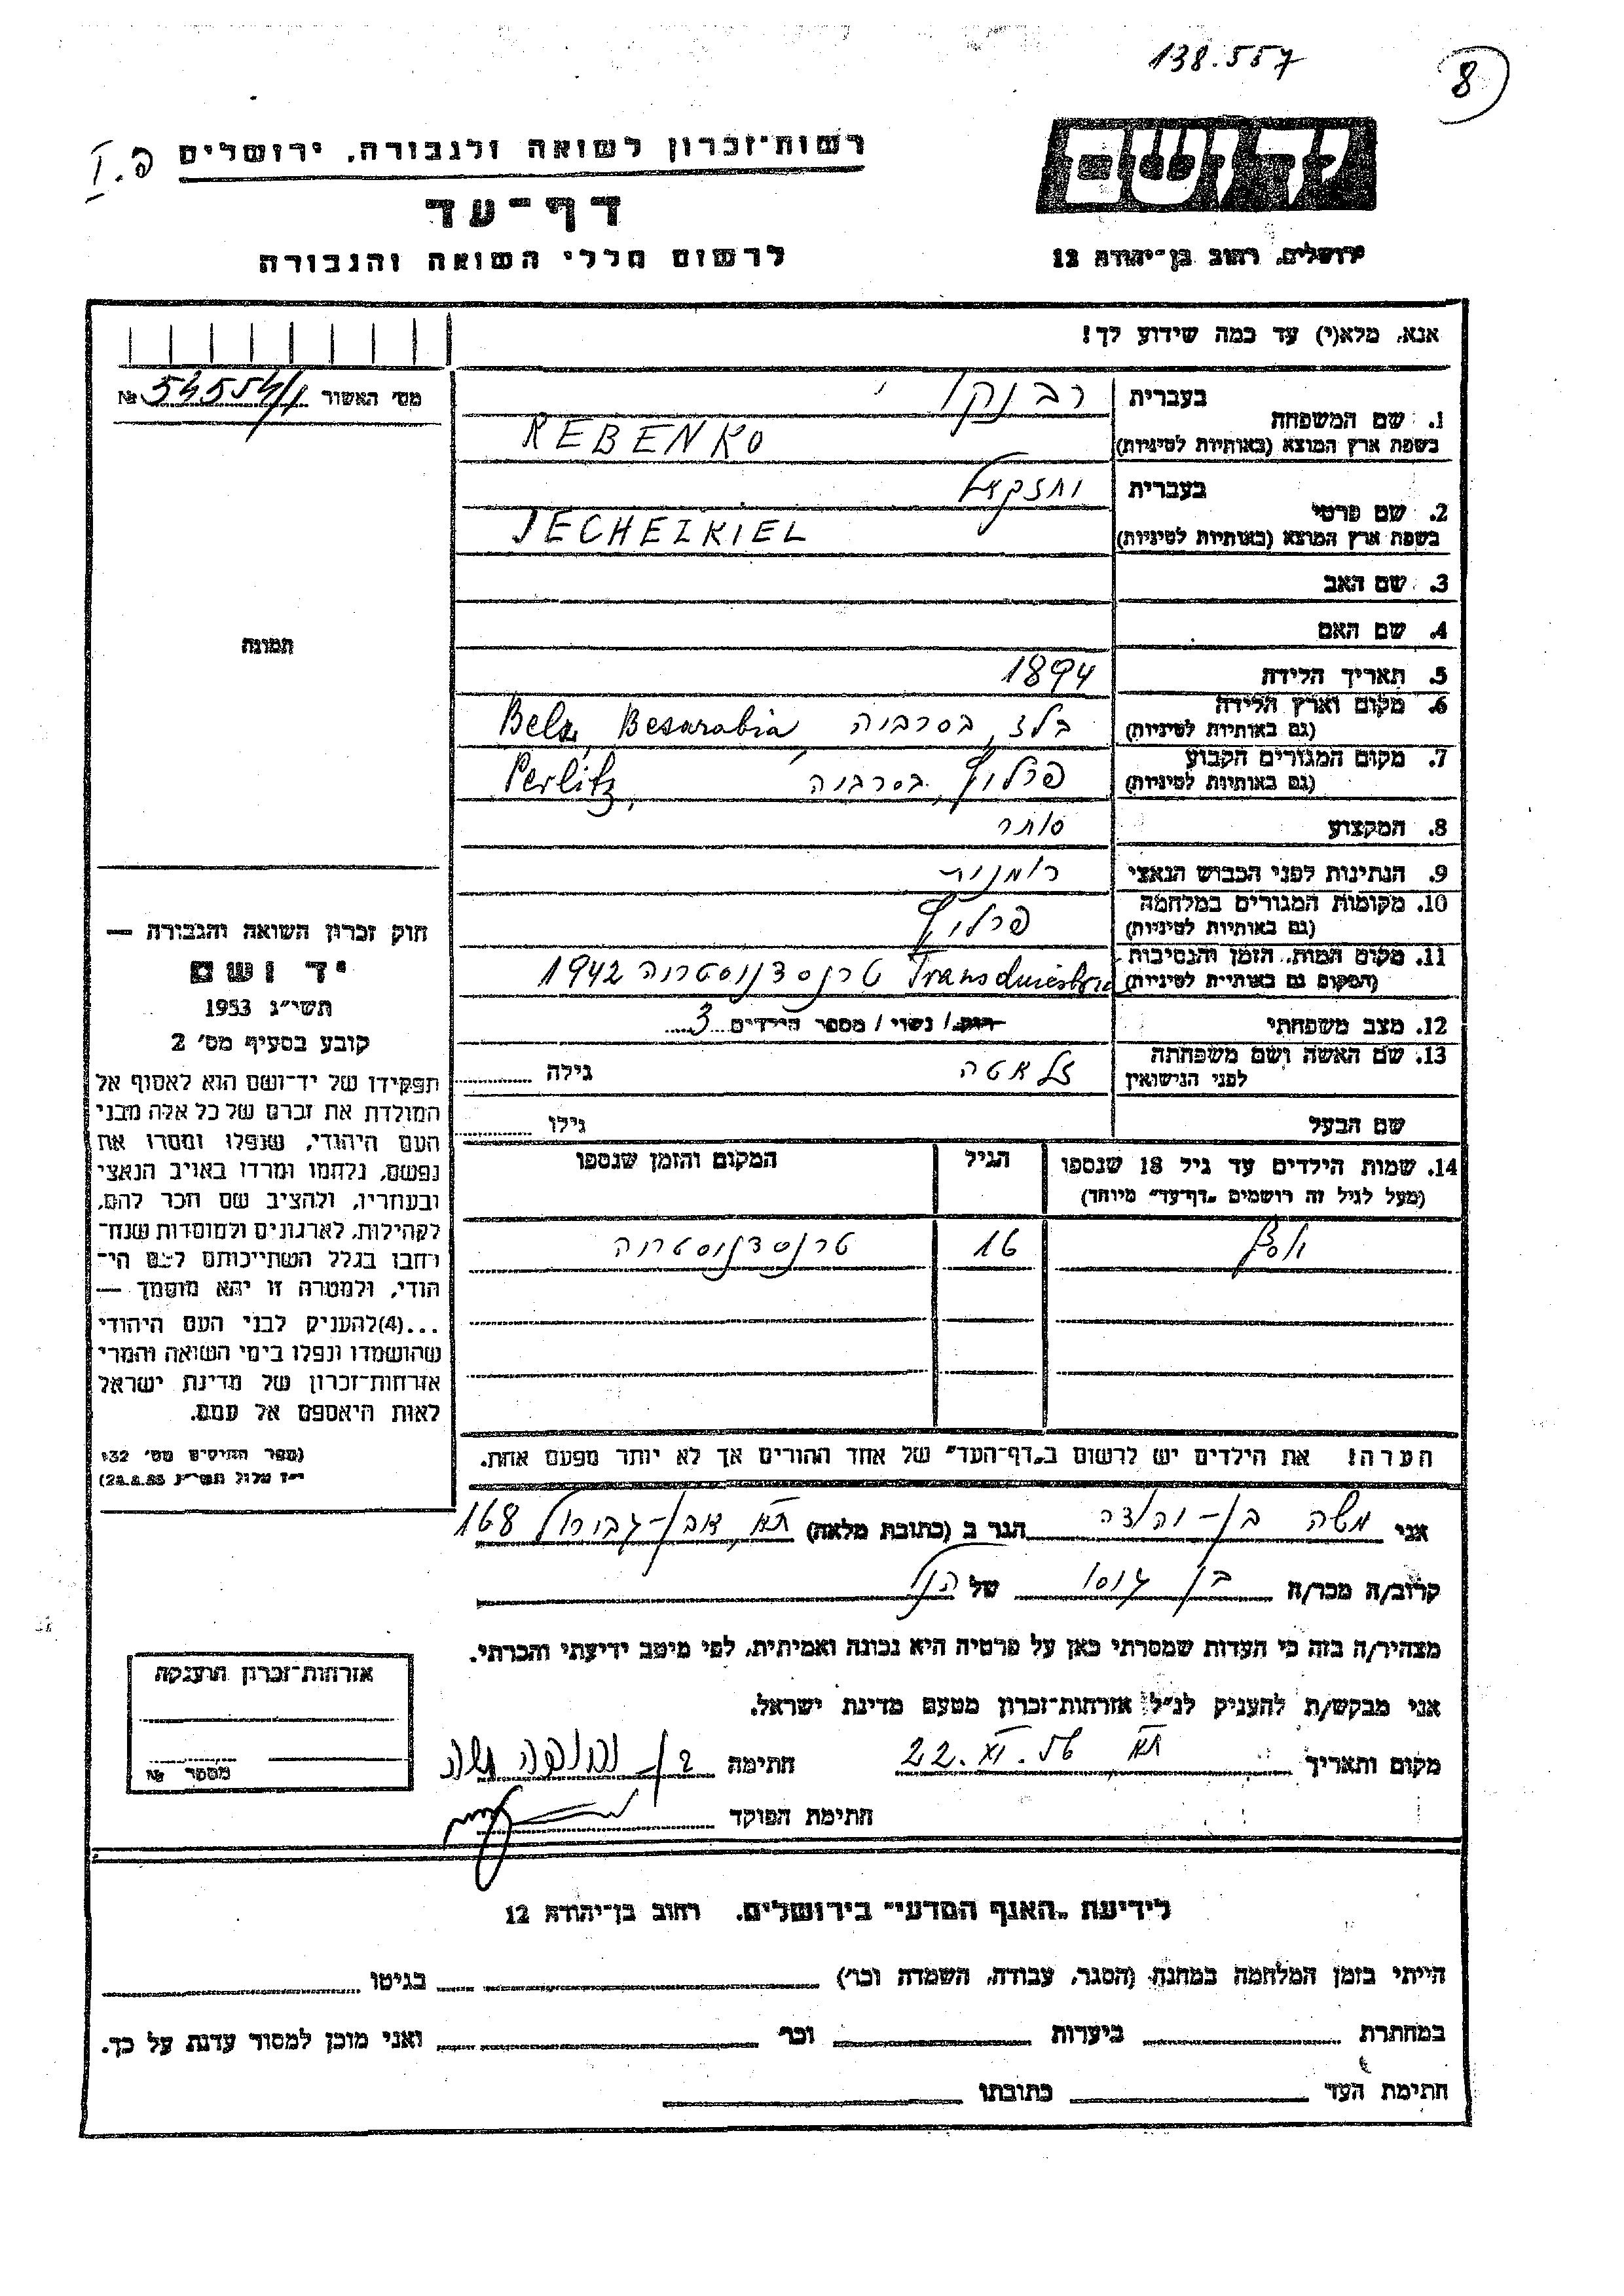 138.557
8
יד ושם
רשות-זכרון לשואה ולגבורה, ירושלים
דף-עד
ירושלים, רחוב בן-יהודה 12
לרשום חללי השואה והגבורה
אנא, מלא(י) עד כמה שידוע לך!
מס' האשור № 54554/1
1. שם המשפחה
בעברית רבנקו
בשפת ארץ המוצא (באותיות לטיניות) REBENKO
2. שם פרטי
בעברית יחזקאל
בשפת ארץ המוצא (באותיות לטיניות) JECHEZKIEL
3. שם האב
4. שם האם
5. תאריך הלידה 1894
6. מקום וארץ הלידה בלז, בסרביה Belz, Besarabia
(גם באותיות לטיניות)
7. מקום המגורים הקבוע פרליץ, בסרביה Perlitz,
(גם באותיות לטיניות)
8. המקצוע סוחר
9. הנתינות לפני הכבוש הנאצי רומנית
10. מקומות המגורים במלחמה פרליץ
(גם באותיות לטיניות)
11. מקום המות, הזמן והנסיבות טרנסדניסטריה 1942
(המקום גם באותיות לטיניות)
12. מצב משפחתי רווק / נשוי / מספר הילדים 3
13. שם האשה ושם משפחתה זלאטה גילה
לפני הנישואין
שם הבעל גילו
14. שמות הילדים עד גיל 18 שנספו הגיל המקום והזמן שנספו
(מעל לגיל זה רושמים "דף-עד" מיוחד)
16 טרנסדניסטריה
הערה! את הילדים יש לרשום ב"דף-העד" של אחד ההורים אך לא יותר מפעם אחת.
תמונה
חוק זכרון השואה והגבורה —
יד ושם
תשי"ג 1953
קובע בסעיף מס' 2
תפקידו של יד-ושם הוא לאסוף אל
המולדת את זכרם של כל אלה מבני
העם היהודי, שנפלו ומסרו את
נפשם, נלחמו ומרדו באויב הנאצי
ובעוזריו, ולהציב שם וזכר להם,
לקהילות, לארגונים ולמוסדות שנח-
רבו בגלל השתייכותם לעם הי-
הודי, ולמטרה זו יהא מוסמך —
...(4)להעניק לבני העם היהודי
שהושמדו ונפלו בימי השואה והמרי
אזרחות-זכרון של מדינת ישראל
לאות היאספם אל עמם.
(ספר החוקים מס' 132
י"ז אלול תשי"ג 28.8.53)
אני משה בן-יהודה הגר ב (כתובת מלאה) ת"א, אבן-גבירול 168
קרוב/ה מכר/ה בן גיסו של הנ"ל
מצהיר/ה בזה כי העדות שמסרתי כאן על פרטיה היא נכונה ואמיתית, לפי מיטב ידיעתי והכרתי.
אני מבקש/ת להעניק לנ"ל אזרחות-זכרון מטעם מדינת ישראל.
מקום ותאריך ת"א 22.XI.56 חתימה
חתימת הפוקד
אזרחות-זכרון הוענקה
מספר №
לידיעת "האגף המדעי" בירושלים, רחוב בן-יהודה 12
הייתי בזמן המלחמה במחנה (הסגר, עבודה, השמדה וכר') בגיטו
במחתרת ביערות וכר' ואני מוכן למסור עדות על כך.
חתימת העד כתובתו